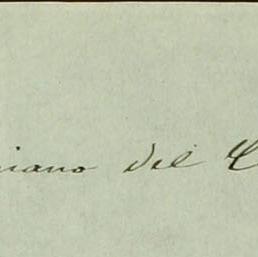 iano del